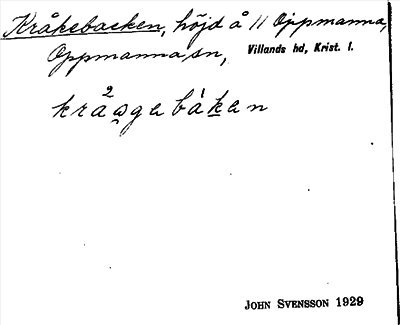 Kråkebacken, höjd å 11 Oppmanna,
Oppmanna sn, Villands hd, Krist. l.
JOHN SVENSSON 1929